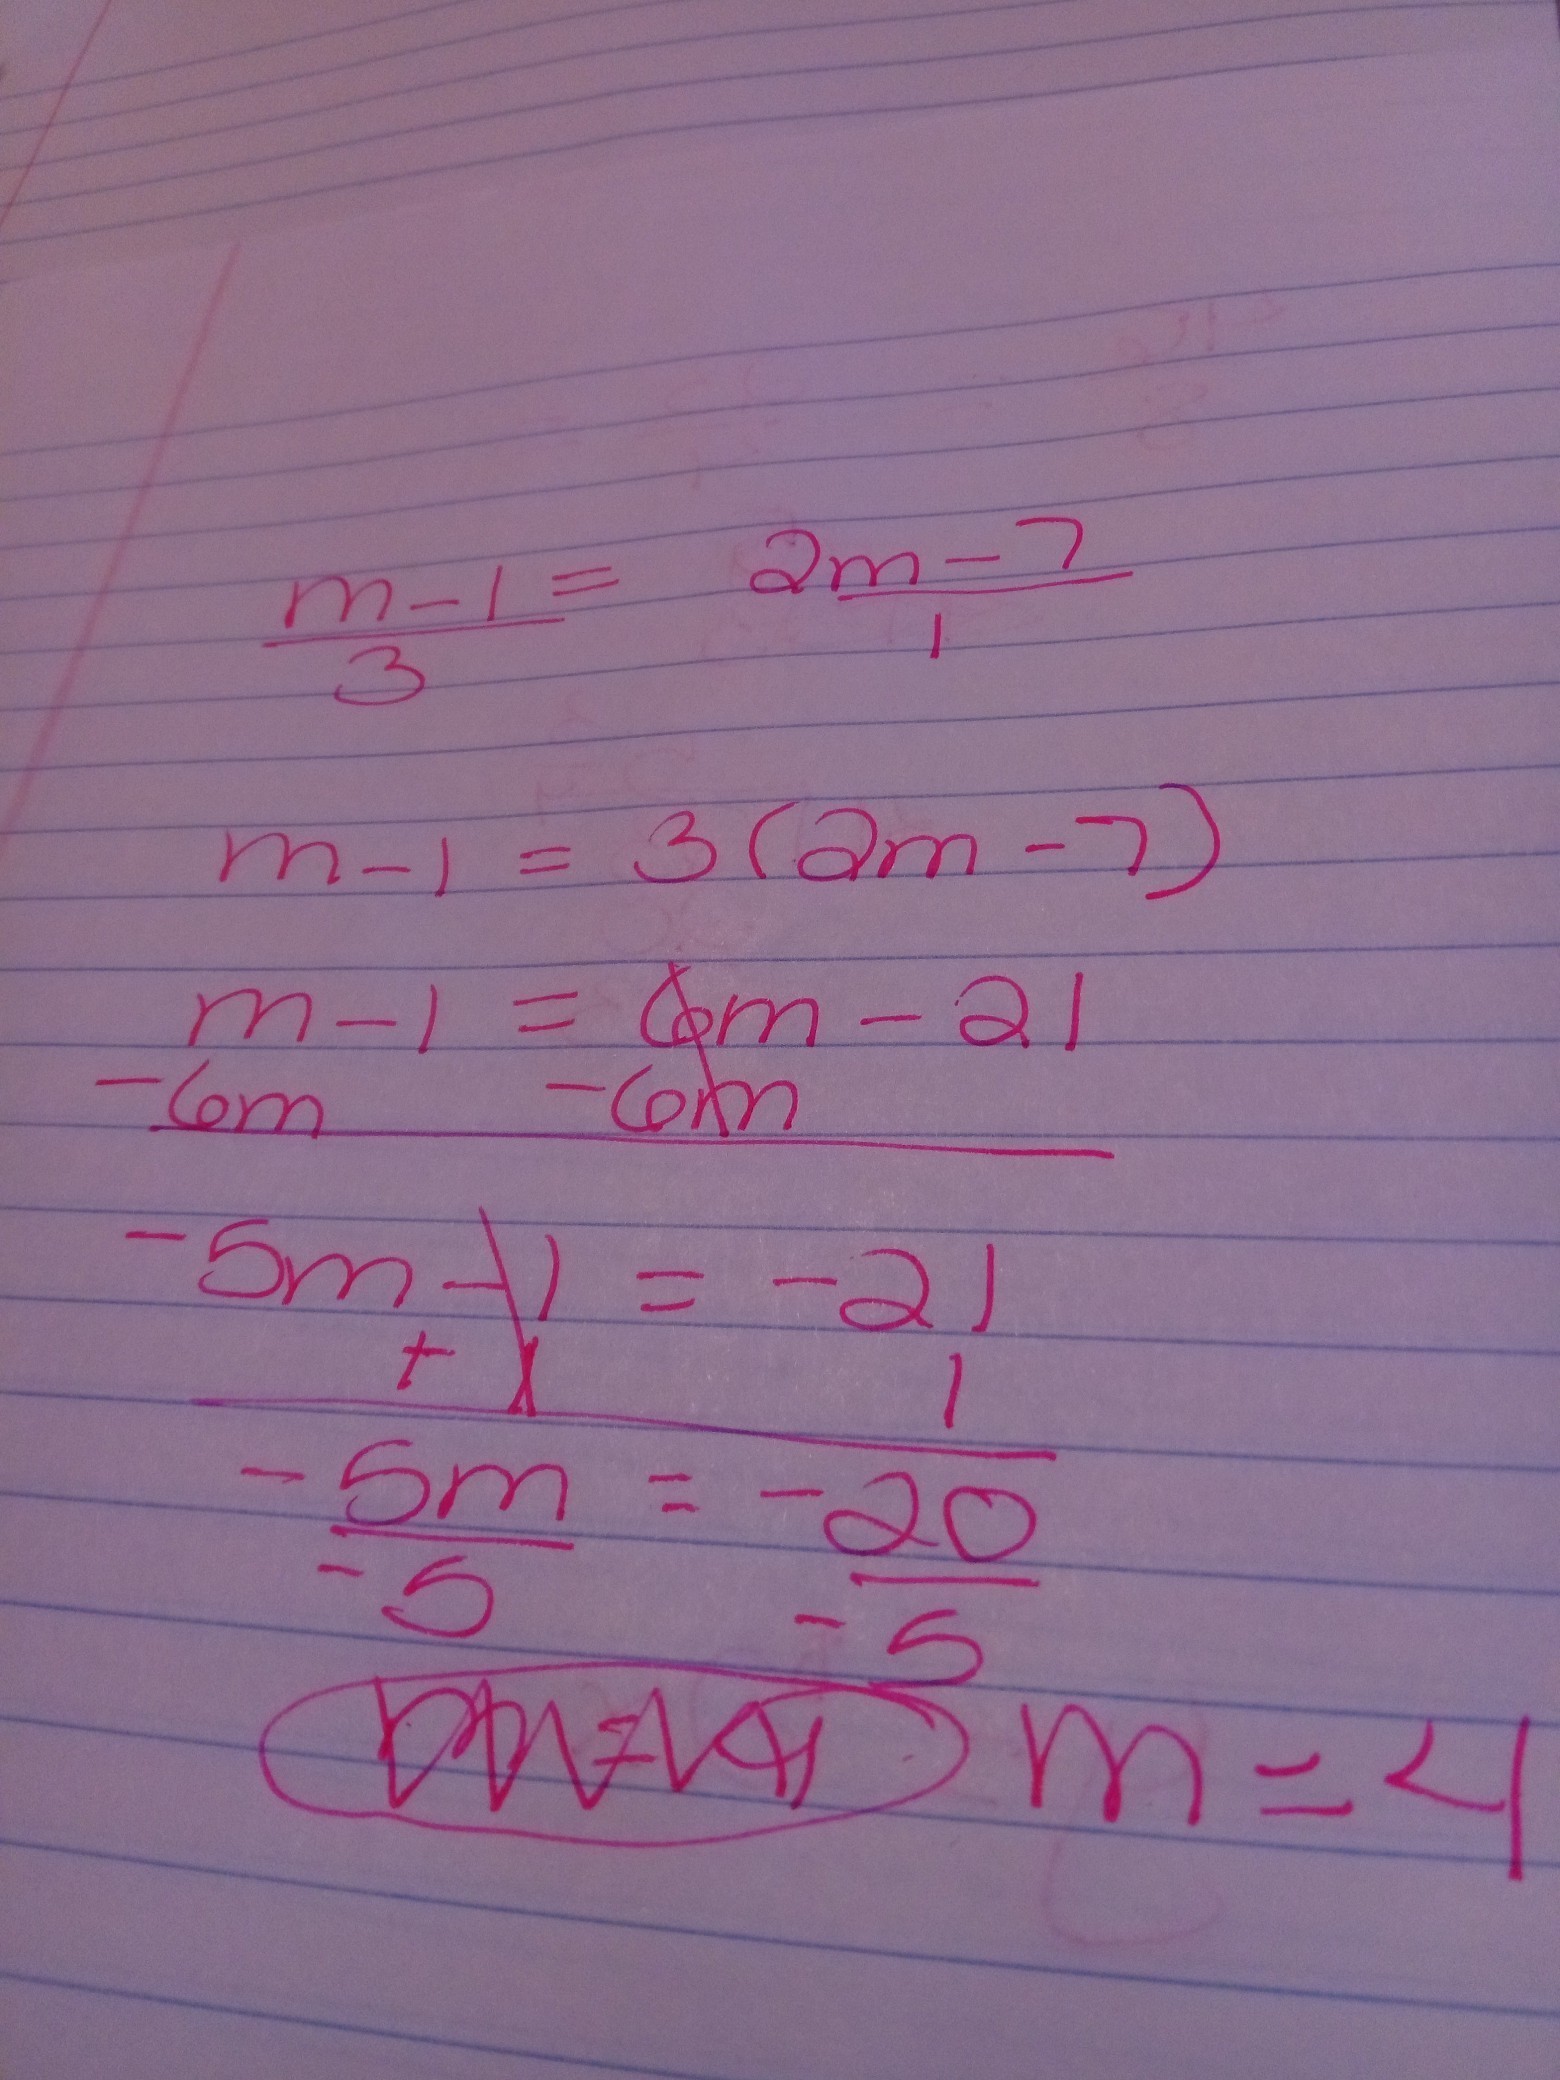 m - 1 = 2m - 7
3 1
m - 1 = 3(2m - 7)
m - 1 = 6m - 21
-6m -6m
-5m - 1 = -21
+ 1 1
-5m = -20
-5 -5
m = 4